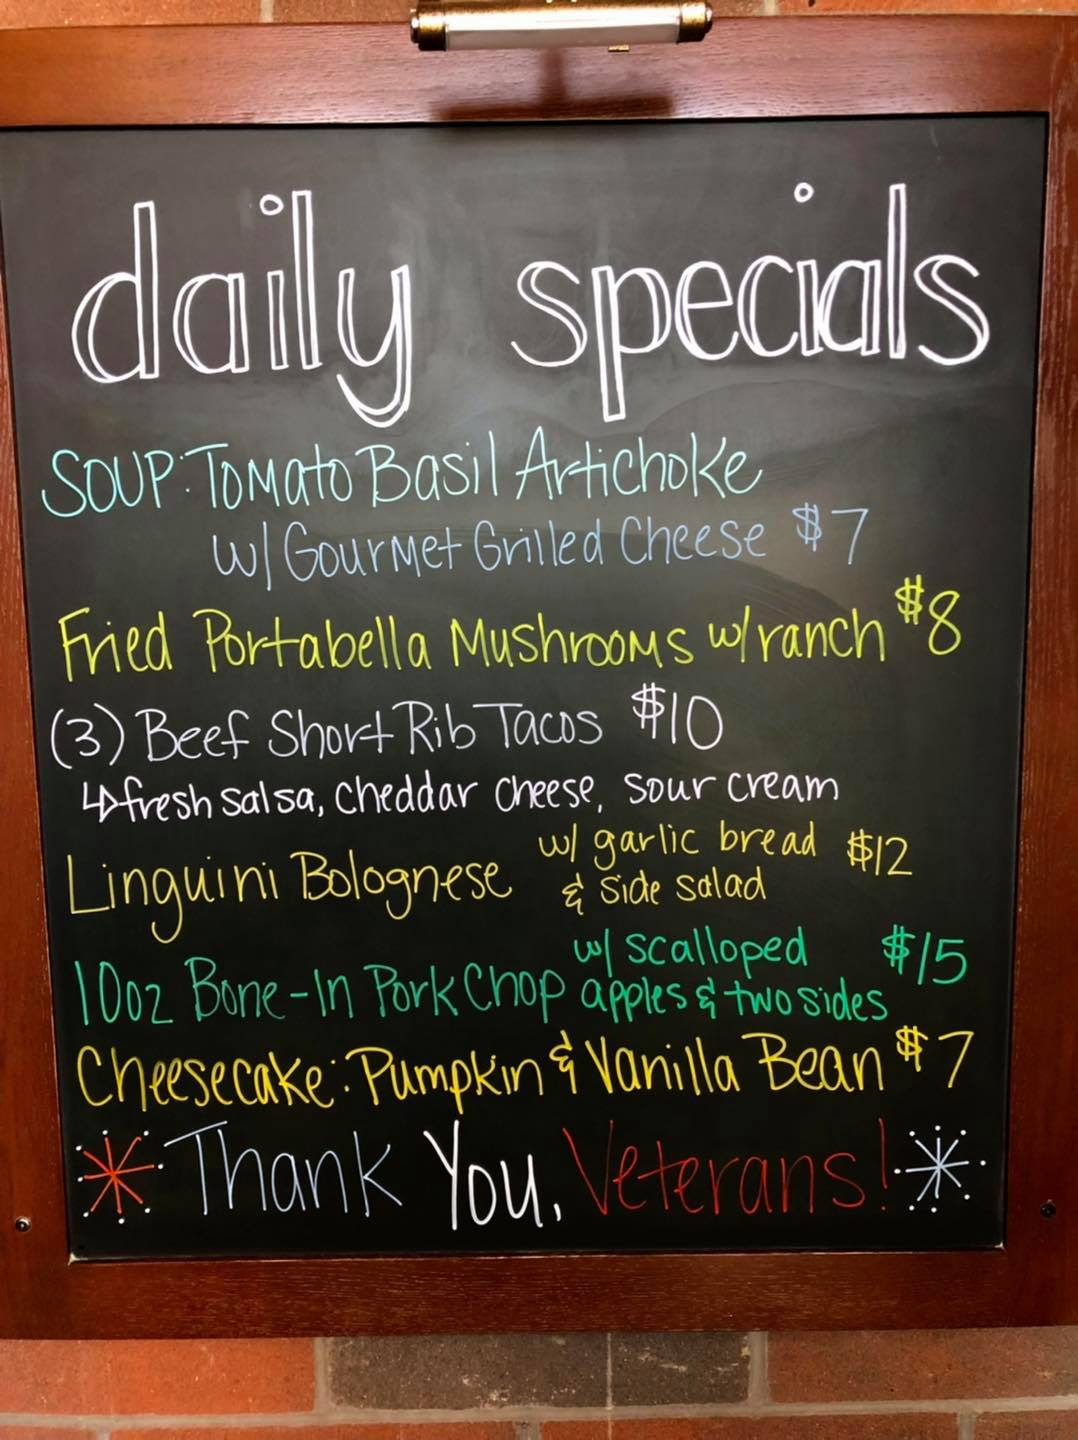 daily specials
SOUP: Tomato Basil Artichoke
w/ Gourmet Grilled Cheese $7
Fried Portabella Mushrooms w/ ranch $8
(3) Beef Short Rib Tacos $10
↳fresh salsa, cheddar cheese, sour cream
Linguini Bolognese w/ garlic bread & side salad $12
10oz Bone-In Pork Chop w/ scalloped apples & two sides $15
Cheesecake: Pumpkin & Vanilla Bean $7
Thank You, Veterans!